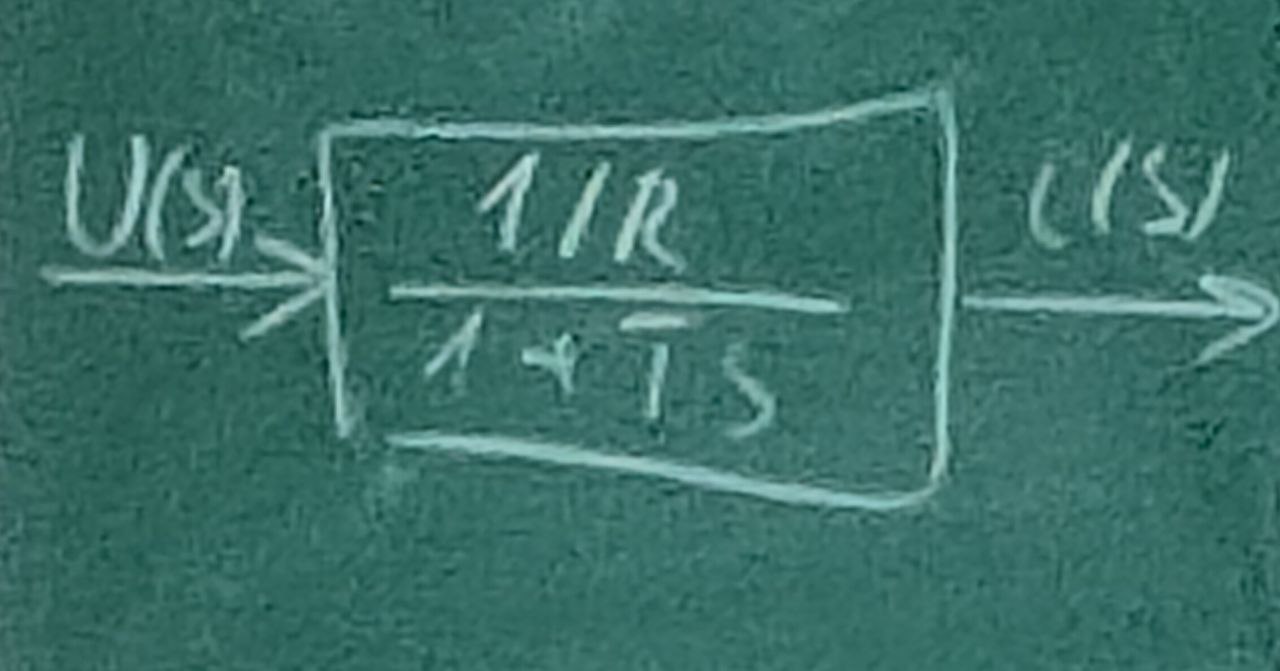 U(s)
1/R
1+Ts
i(s)